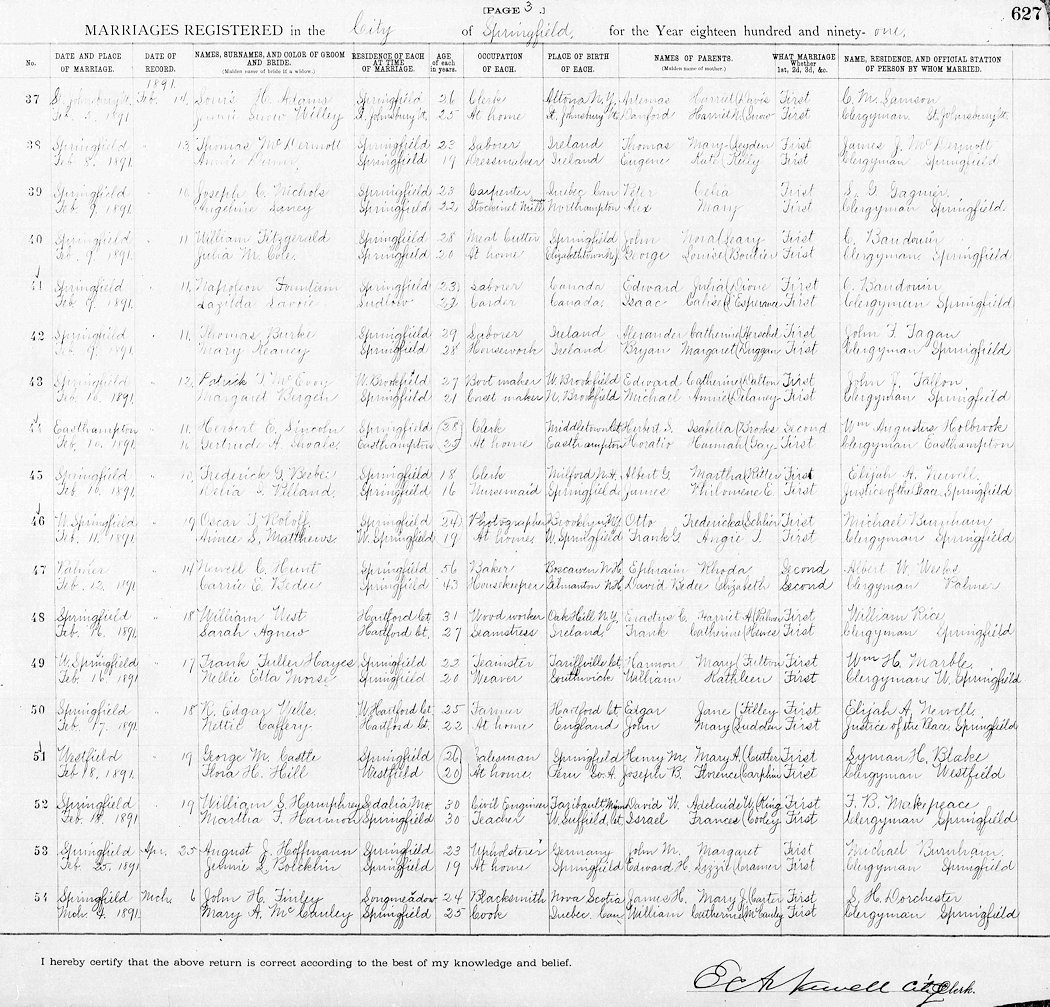 [PAGE 3.]
627
MARRIAGES REGISTERED in the City of Springfield, for the Year eighteen hundred and ninety-one.
No. DATE AND PLACE OF MARRIAGE. DATE OF RECORD. NAMES, SURNAMES, AND COLOR OF GROOM AND BRIDE. (Maiden name of bride if a widow.) RESIDENCE OF EACH AT TIME OF MARRIAGE. AGE of each in years. OCCUPATION OF EACH. PLACE OF BIRTH OF EACH. NAMES OF PARENTS. (Maiden name of mother.) WHAT MARRIAGE Whether 1st, 2d, 3d, &c. NAME, RESIDENCE, AND OFFICIAL STATION OF PERSON BY WHOM MARRIED.
1891
37 St. Johnsbury Vt. Feb. 14, Louis H. Adams Springfield 26 Clerk Altona N.Y. Artemas Harriet (Davis First C. M. Lamson
Feb. 5, 1891 Jennie Snow Willey St. Johnsbury Vt. 25 At home St. Johnsbury Vt. Danford Harriet (Snow First Clergyman St. Johnsbury Vt.
38 Springfield " 13 Thomas McDermott Springfield 23 Laborer Ireland Thomas Mary (Leyden First James J. McDermott
Feb. 8, 1891 Annie Springfield 19 Dressmaker Ireland Eugene Kate (Kelly First Clergyman Springfield
39 Springfield " 10 Joseph C. Nichols Springfield 23 Carpenter Quebec Can Peter Celia First L. G. Gagnier
Feb. 9, 1891 Angeline Springfield 22 Stockinet Mill Northampton Alex Mary First Clergyman Springfield
40 Springfield " 11 William Fitzgerald Springfield 28 Meat Cutter Springfield John Nora (Leary First C. Baudouin
Feb. 9, 1891 Julia M. Cole Springfield 20 At home Elizabethtown N.J. George Louise (Boutier First Clergyman Springfield
41 Springfield " 11, Napoleon Fountain Springfield 23 Laborer Canada Edward Julia (Dione First C. Baudouin
Feb. 9, 1891 Lazilda Savoie Ludlow 22 Carder Canada Isaac Calise (L'Esperance First Clergyman Springfield
42 Springfield " 11, Thomas Burke Springfield 29 Laborer Ireland Alexander Catherine First John T. Fagan
Feb. 9, 1891 Mary Keaney Springfield 28 Housework Ireland Bryan Margaret (Duggan First Clergyman Springfield
43 Springfield " 12, Patrick McEvoy W. Brookfield 27 Boot maker W. Brookfield Edward Catherine (Dalton First John J. Fallon
Feb. 10, 1891 Margaret Bergen Springfield 21 Corset maker N. Brookfield Michael Annie (Delaney First Clergyman Springfield
44 Easthampton " 11 Herbert E. Lincoln Springfield 38 Clerk Middletown Ct. Herbert S. Isabella (Brooks Second Wm Augustus Holbrook
Feb. 10, 1891 16 Gertrude A. Shoals Easthampton 25 At home Easthampton Horatio Hannah (Gay First Clergyman Easthampton
45 Springfield " 10, Frederick G. Beebe Springfield 18 Clerk Milford N.H. Albert G. Martha (Ritter First Elijah A. Newell
Feb. 10, 1891 Delia Springfield 16 Nursemaid Springfield James Philomene E. First Justice of the Peace Springfield
46 W. Springfield " 19 Oscar T. Koloff Springfield 24 Photographer Brooklyn N.Y. Otto Fredericka (Schlier First Michael Burnham
Feb. 11, 1891 Aimee S. Matthews W. Springfield 19 At home W. Springfield Frank G. Angie T. First Clergyman Springfield
47 Palmer " 14 Newell C. Hunt Springfield 56 Baker Boscawen N.H. Ephraim Rhoda Second Albert W. Weeks
Feb. 12, 1891 Carrie E. Bedee Springfield 43 Housekeeper Gilmanton N.H. David Bedee Elizabeth Second Clergyman Palmer
48 Springfield " 18 William West Hartford Ct. 31 Wood worker Oak Hill N.Y. Erastus C. Harriet A (Palmer First William Rice
Feb. 16, 1891 Sarah Agnew Hartford Ct. 27 Seamstress Ireland Frank Catherine First Clergyman Springfield
49 W. Springfield " 17 Frank Fuller Hayes Springfield 22 Teamster Tariffville Ct. Harmon Mary (Fulton First Wm H. Marble
Feb. 16, 1891 Nellie Etta Morse Springfield 20 Weaver Southwick William Kathleen First Clergyman W. Springfield
50 Springfield " 18 R. Edgar Wells W. Hartford Ct. 25 Farmer Hartford Ct. Edgar Jane (Filley First Elijah A. Newell
Feb. 17, 1891 Nettie Caffery Hartford Ct. 22 At home England John Mary (Sudden First Justice of the Peace, Springfield
51 Westfield " 19 George M. Castle Springfield 26 Salesman Springfield Henry M. Mary A. (Cutler First Lyman H. Blake
Feb. 18, 1891 Flora H. Hill Westfield 20 At home Joseph B. Florence First Clergyman Westfield
52 Springfield " 19 William S. Humphrey Sedalia Mo. 30 Civil Engineer Faribault, Minn David W. Adelaide W. (King First F. B. Makepeace
Feb. 18, 1891 Martha F. Harmon Springfield 30 Teacher W. Suffield, Ct. Israel Frances (Cooley First Clergyman Springfield
53 Springfield Apr. 25 August J. Hoffmann Springfield 23 Upholsterer Germany John M. Margaret First Michael Burnham
Feb. 25, 1891 Jennie L. Boecklin Springfield 19 At home Springfield Edward H. Lizzie (Cramer First Clergyman Springfield
54 Springfield Mch. 6 John H. Finley Longmeadow 24 Blacksmith Nova Scotia James H. Mary J. (Carter First S. H. Dorchester
Mch. 4, 1891 Mary A. McCauley Springfield 25 Cook Quebec Can William Catherine (McCauley First Clergyman Springfield
I hereby certify that the above return is correct according to the best of my knowledge and belief.
E. A. Newell City Clerk.